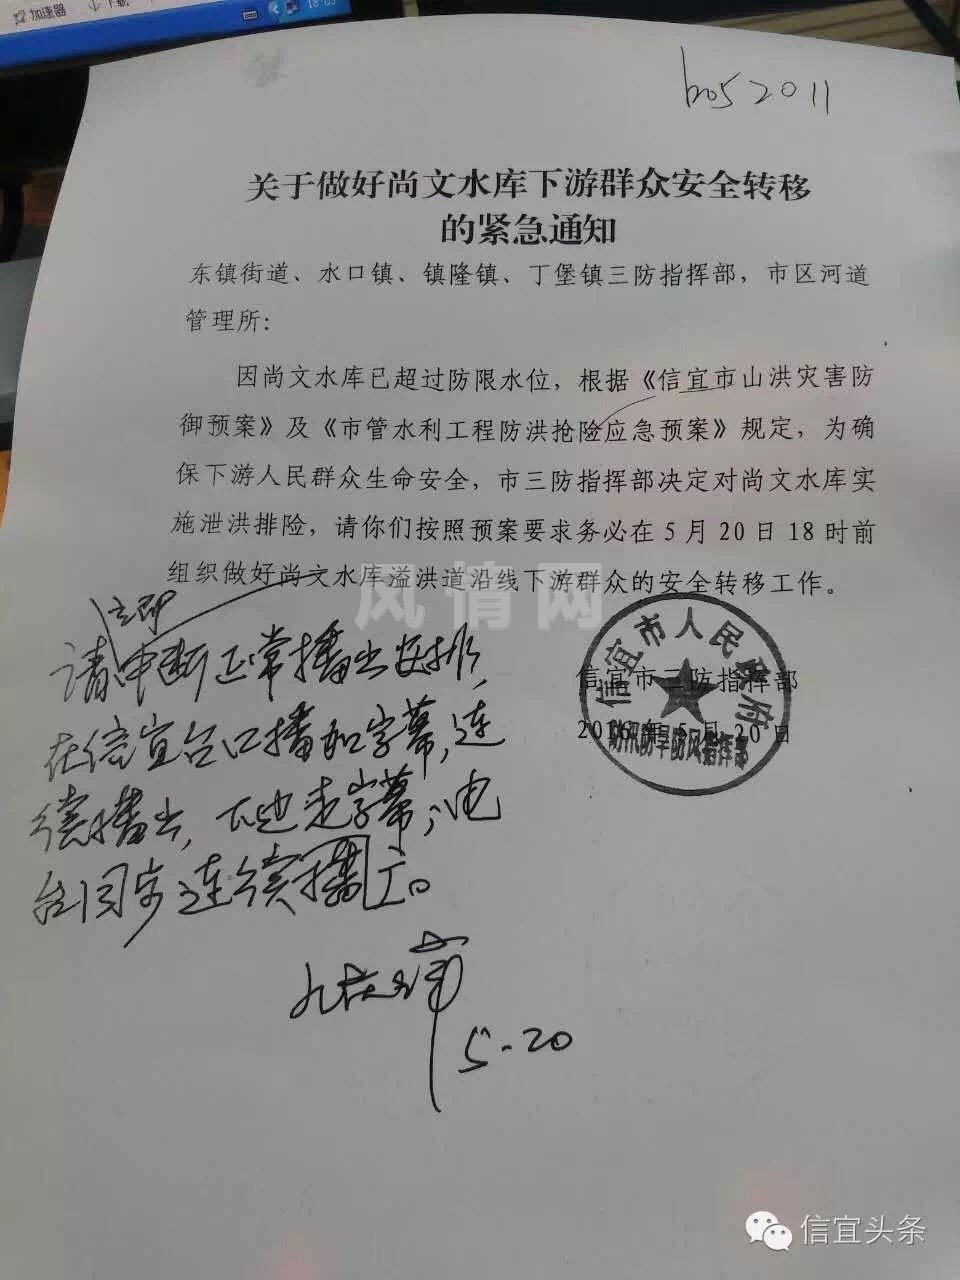 加速器
下载
18:05
bos 2011
关于做好尚文水库下游群众安全转移
的紧急通知
东镇街道、水口镇、镇隆镇、丁堡镇三防指挥部，市区河道
管理所：
因尚文水库已超过防限水位，根据《信宜市山洪灾害防
御预案》及《市管水利工程防洪抢险应急预案》规定，为确
保下游人民群众生命安全，市三防指挥部决定对尚文水库实
施泄洪排险，请你们按照预案要求务必在 5 月 20 日 18 时前
组织做好尚文水库溢洪道沿线下游群众的安全转移工作。
风情网
信宜市人民政府
信宜市三防指挥部
2016 年 5 月 20 日
防汛防旱防风指挥部
立即
请中断正常播出安排，
在信宜台口播和字幕，连
续播出，下边走字幕；电
台同步连续播出。
5-20
信宜头条